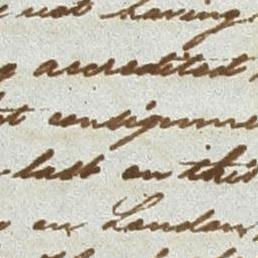 not having
accredited
consignme
last on this
on London